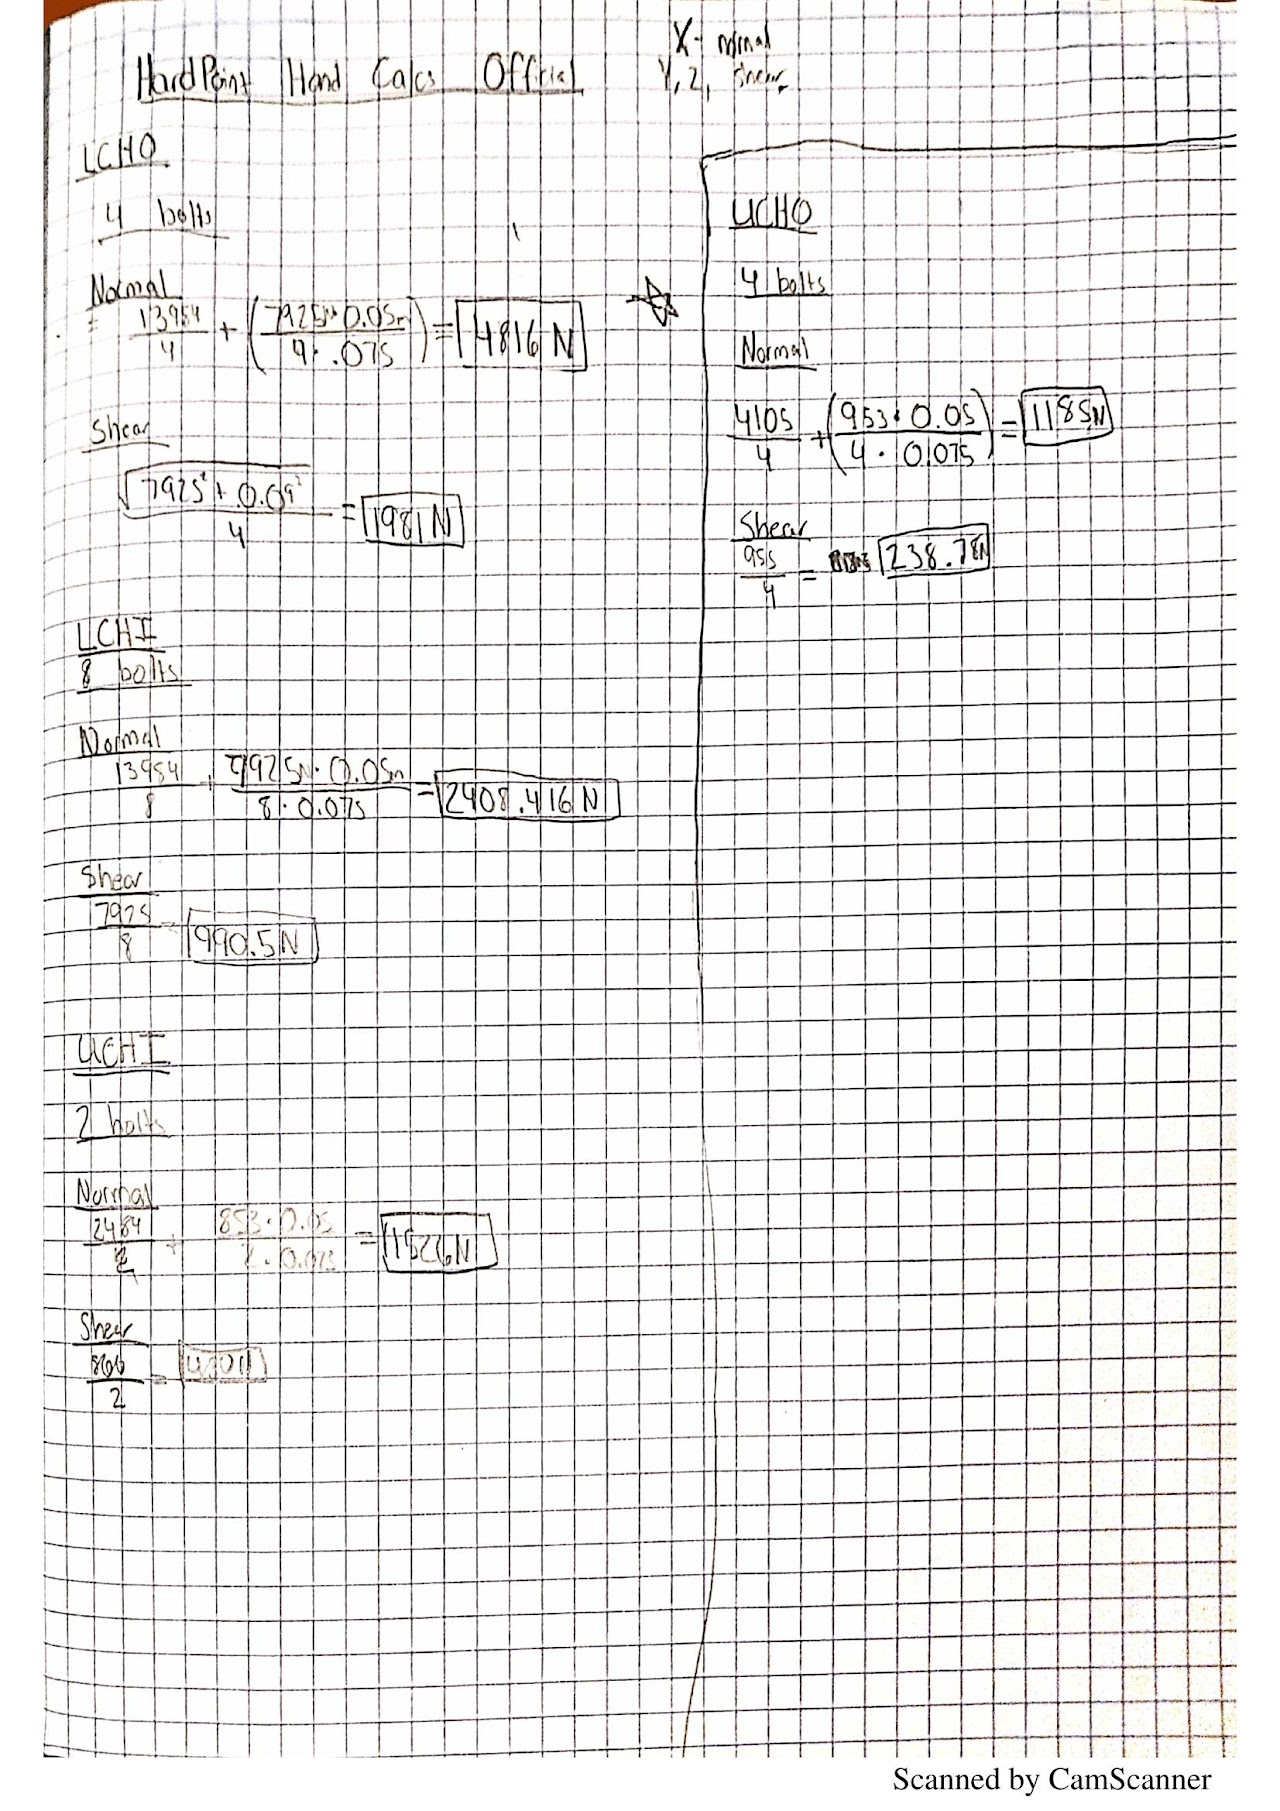 HardPoint Hand Calcs Official
X - normal
Y, Z, shear
LCHO
4 bolts
Normal
= 13954/4 + (7925N · 0.05m / 4 · .075) = 4816 N
Shear
√(7925² + 0.09²) / 4 = 1981 N
LCHI
8 bolts
Normal
13954/8 + 7925N · 0.05m / 8 · 0.075 = 2408.416 N
Shear
7925/8 = 990.5 N
UCHI
2 bolts
Normal
2484/2 + 853 · 0.05 / 2 · 0.075 = 1526N
Shear
866/2 =
UCHO
4 bolts
Normal
4105/4 + (953 · 0.05 / 4 · 0.075) = 1185N
Shear
955/4 = 238.78N
Scanned by CamScanner